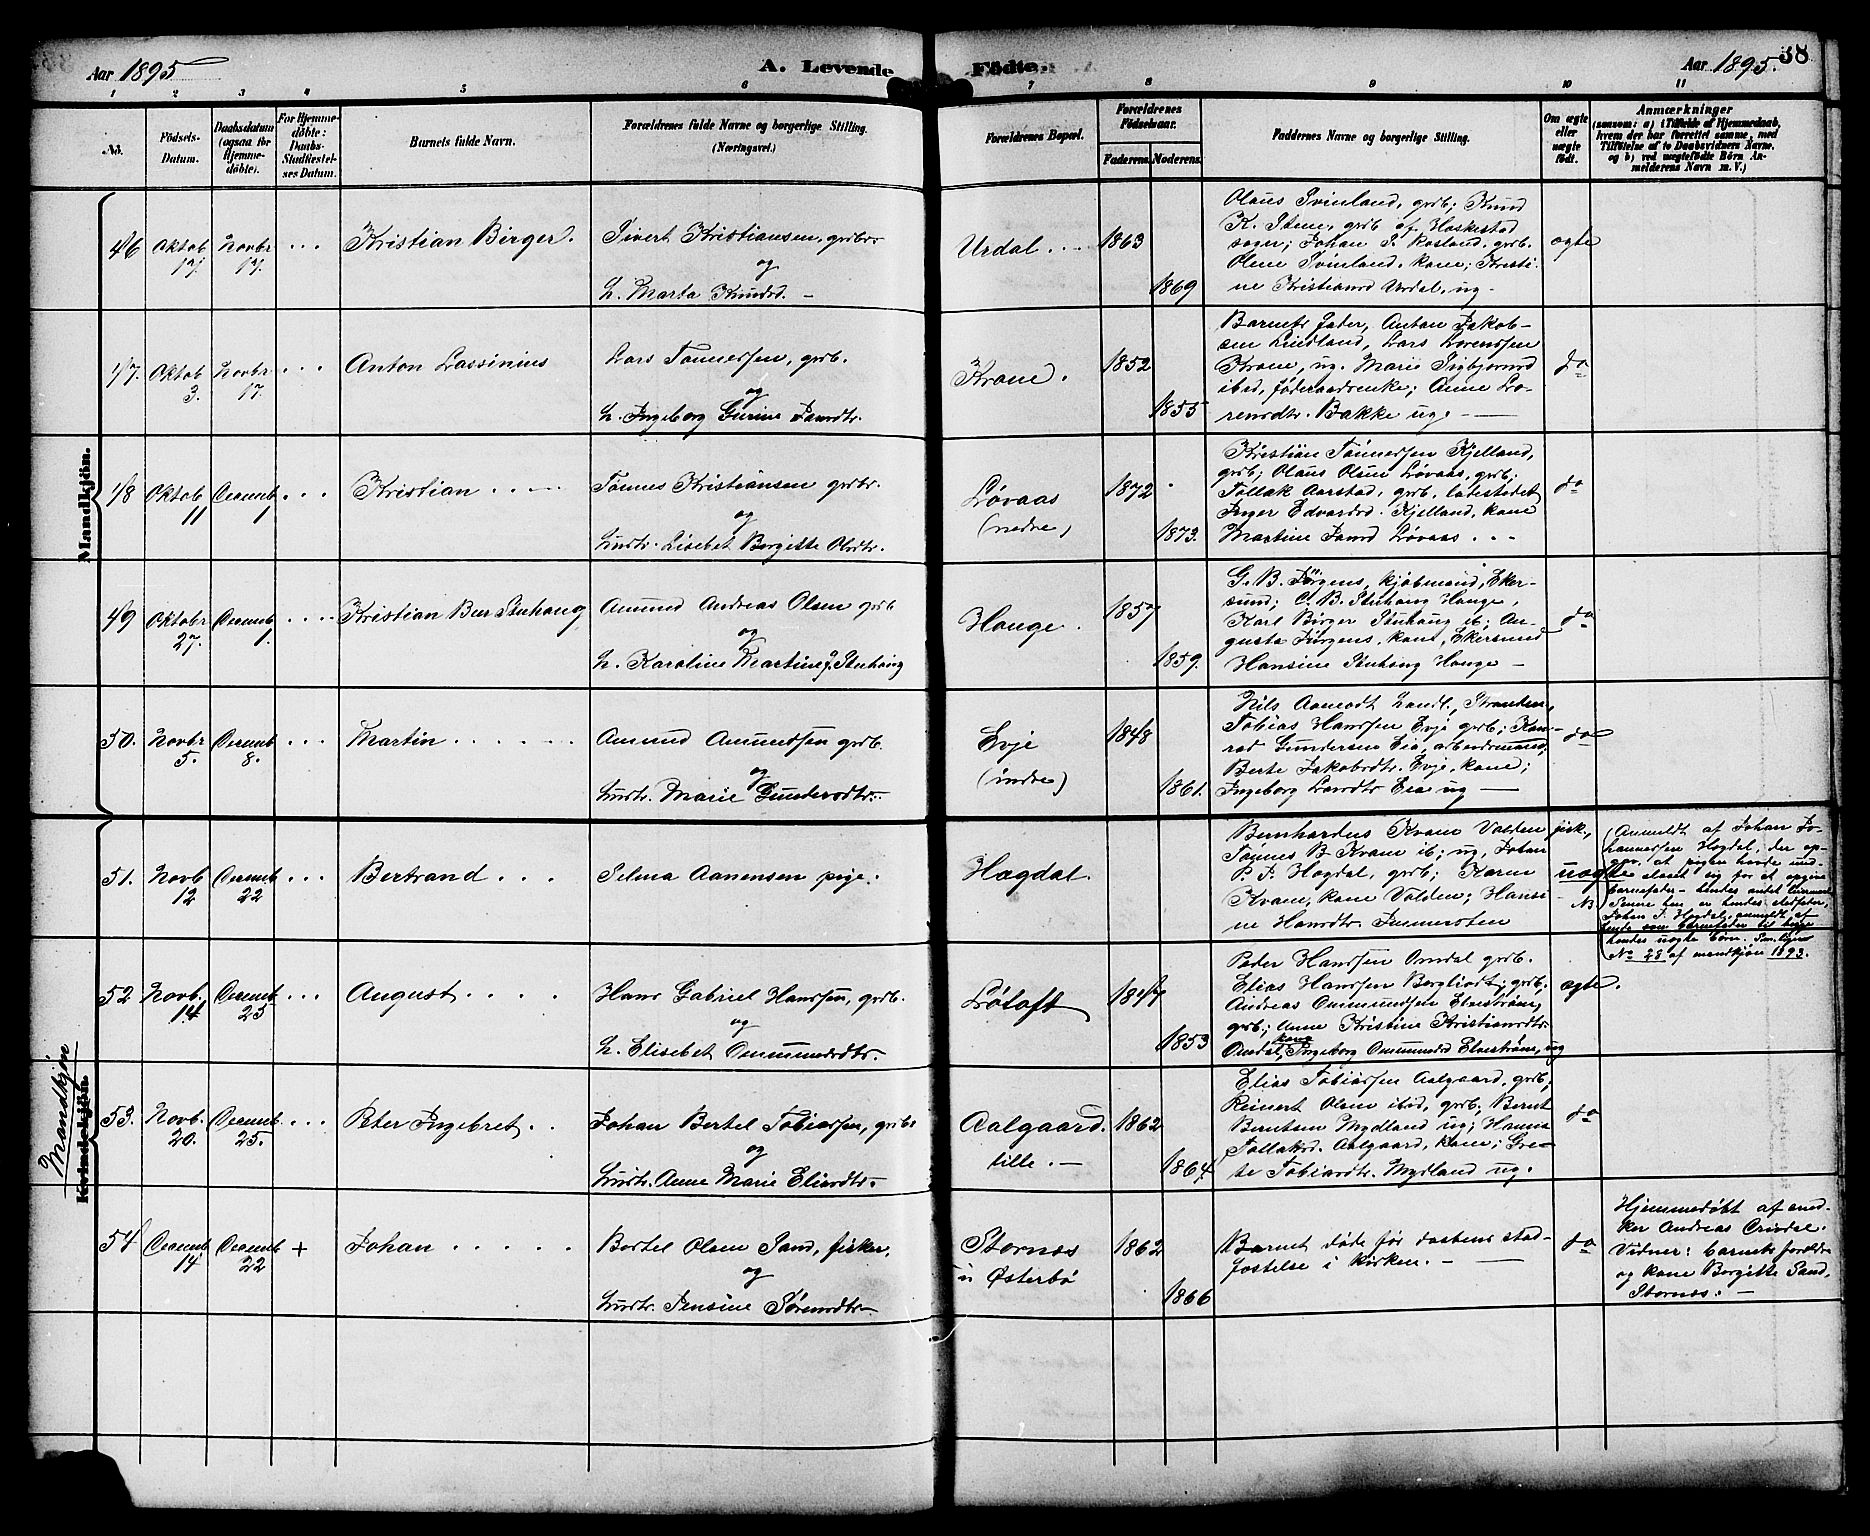 Aar 1895
A. Levende
Födte.
Aar 1895.
38
1 2 3 4 5 6 7 8 9 10 11
No.
Födsels-
Datum.
Daabsdatum
(ogsaa for
Hjemme-
döbte).
For Hjemme-
döbte:
Daabs-
Stadfæstel-
ses Datum.
Barnets fulde Navn.
Forældrenes fulde Navne og borgerlige Stilling.
(Næringsvei.)
Forældrenes Bopæl.
Forældrenes
Födselsaar.
Faderens.
Moderens.
Faddernes Navne og borgerlige Stilling.
Om ægte
eller
uægte
födt.
Anmærkninger
(saasom: a) i Tilfælde af Hjemmedaab,
hvem der har forrettet samme, med
Tilföielse af to Daabsvidners Navne,
og b) ved uægtefödte Börn An-
melderens Navn m. V.)
Mandkjön.
46 Oktob 17. Novbr 17. . . . Kristian Birger.
Sivert Kristiansen, grdbr.
og
H. Marta Knudsd. –
Urdal . . . 1863
1869
Olaus Svinland, grdb; Knud
K. Stene, grdb af Heskestad
sogn; Johan S. Rosland, grdb.
Olene Svinland, kone; Kristi-
ne Kristiansd Urdal, ug –
ægte
47. Oktob 3. Novbr 17. . . . Anton Lassinius
Lars Tønnessen, grdb.
og
H. Ingeborg Gurine Jansdtr.
Kvane. 1852
1855
Barnets fader, Anton Jakob-
sen Lindland, Lars Lorenssen
Kvane, ug. Marie Sigbjørnsd
ibid, føderaadsenke; Anne Lo-
rensdtr. Bakke ug. –
do
48 Oktob 11 Decemb 1 . . . Kristian . . . .
Tønnes Kristiansen grdbr.
og
Hustr. Lisebet Bergitte Olsdtr.
Løvaas
(nedre)
1872
1873.
Kristian Tønnessen Kjelland,
grdb; Olaus Olsen Løvaas, grdb;
Tollak Aarstad, grdb.
Inger Edvardsd. Kjelland, kone
Martine Jansd Løvaas . . .
do
49 Oktobr 27. Decemb 1. . . . . Kristian Stuhaug
Amund Andreas Olsen grdb
og
H. Karoline Martine J. Stuhaug
Hauge. 1857
1859.
G. B. Jørgens, kjøbmand, Eker-
sund; C. B. Stuhaug Hauge,
Karl Birger Stuhaug ib; Au-
gusta Jørgens, kone, Ekersund
Hansine Stuhaug Hauge –
do
50. Novbr 5. Decemb 8. . . . Martin . . . . .
Amund Amundsen grdb.
og
Hustr. Marie Gundersdtr.
Evje
(indre)
1848
1861.
Nils Aamodt Stranden,
Tobias Hanssen Evje grdb; Kon-
rad Gundersen Eia, arbeidsmand;
Berte Jakobsdtr. Evje, kone;
Ingeborg Larsdtr Eia ug –
do
51. Novb 12 Decemb 22 . . . Bertrand . . .
Selma Aanensen pige.
Høgdal.
Bernhardus Kvam Valden fisk.,
Tønnes B. Kvam ib; ug, Johan
P. J. Høgdal, grdb; Karen
Kvam, kone Valden; Hansi-
ne Hansdtr.
uægte
NB
Anmeldt af Johan Jo-
hannessen Høgdal, der op-
gav, at pigen havde und-
slaaet sig for at opgive
barnefader – hendes andet
hendes stedfader,
Johan J. Høgdal, anmeldt af
barnefader til begge
hendes uægte børn.
No 28 af mandkjøn 1893.
Mandkjøn
Kvindekjön.
52 Novb. 14 Decemb 25 . . . August . . . .
Hans Gabriel Hanssen, grdb.
og
H. Elisebet Ommundsdtr.
Løtoft 1847
1853
Peder Hanssen Omdal grdb.
Elias Hanssen grdb.
Andreas Ommundsen Elvestrøm,
grdb; Anne Kristine Kristiansdtr.
Omdal, kone Ingeborg Ommundsd Elvestrøm, ug
ægte.
53. Novb. 20. Decemb 25. . . . Peter Ingebret . .
Johan Bertel Tobiassen, grdbr
og
Hustr. Anne Marie Eliasdtr.
Aalgaard.
lille. –
1862
1864.
Elias Tobiassen Aalgaard, grdb,
Reinert Olsen ibid, grdb; Bernt
Berntsen Mydland ug; Hanna
Tollaksd. Aalgaard, kone; Gre-
te Tobiasdtr. Mydland ug.
do
54 Decemb 14 Decemb 22 + Johan . . . . .
Bertel Olsen Sand, fisker,
og
Hustr. Jensine Sørensdtr
Stornæs
u Østerbø
1862
1866
Barnet døde før daabens stad-
fæstelse i kirken. –
do
Hjemmedøbt af
Andreas
Vidner: barnets forældre
og kone Bergitte Sand,
Stornæs. –